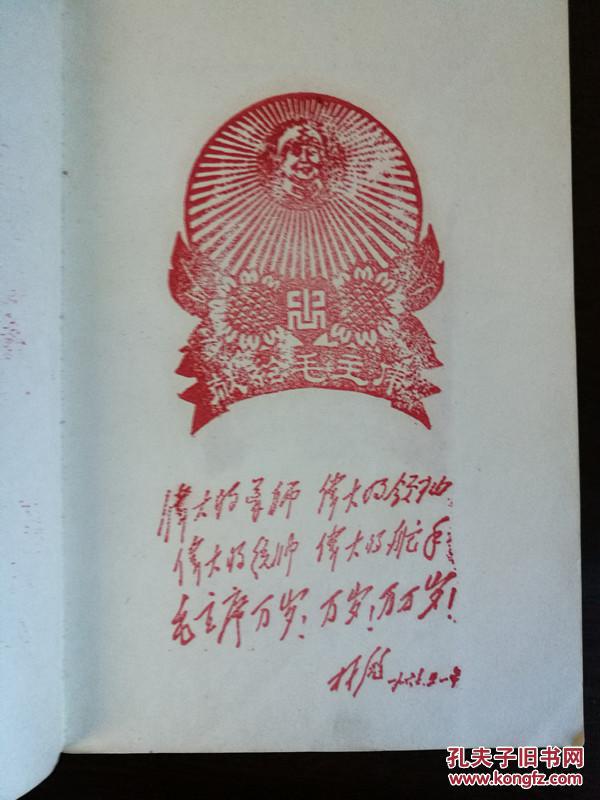 献给毛主席
偉大的导师 偉大的领袖
偉大的统帅 偉大的舵手
毛主席万岁!万岁!万万岁!
林彪
孔夫子旧书网
www.kongfz.com